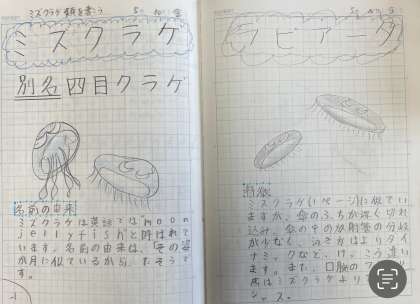 ミズクラゲ類を書こう
ミズクラゲ
別名四目クラゲ
名前の由来
ミズクラゲは英語では moon
jellyfishと呼ばれて
います。名前の由来は、その姿
が月に似ているから、だそうで
す。
1
ラビアータ
特徴
ミズクラゲ(1ページ)に似てい
ますが、傘のふちが深く切れ
込み、傘の中の放射管の分岐
が少なく、泳ぎ方はよりダイ
ナミックなど、けっこう違い
ます。また、口腕の
席はミズクラゲより